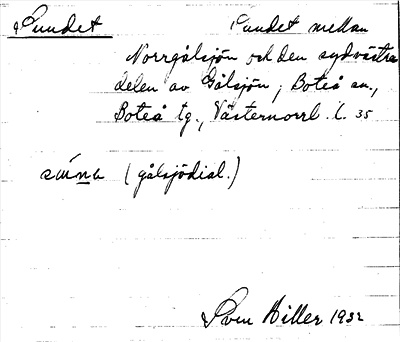 Sundet Sundet mellan
Norrgålsjön och den sydvästra
delen av Gålsjön, Boteå sn.,
Boteå tg., Västernorrl. l. 35
(gålsjödial.)
Sven Hiller 1932